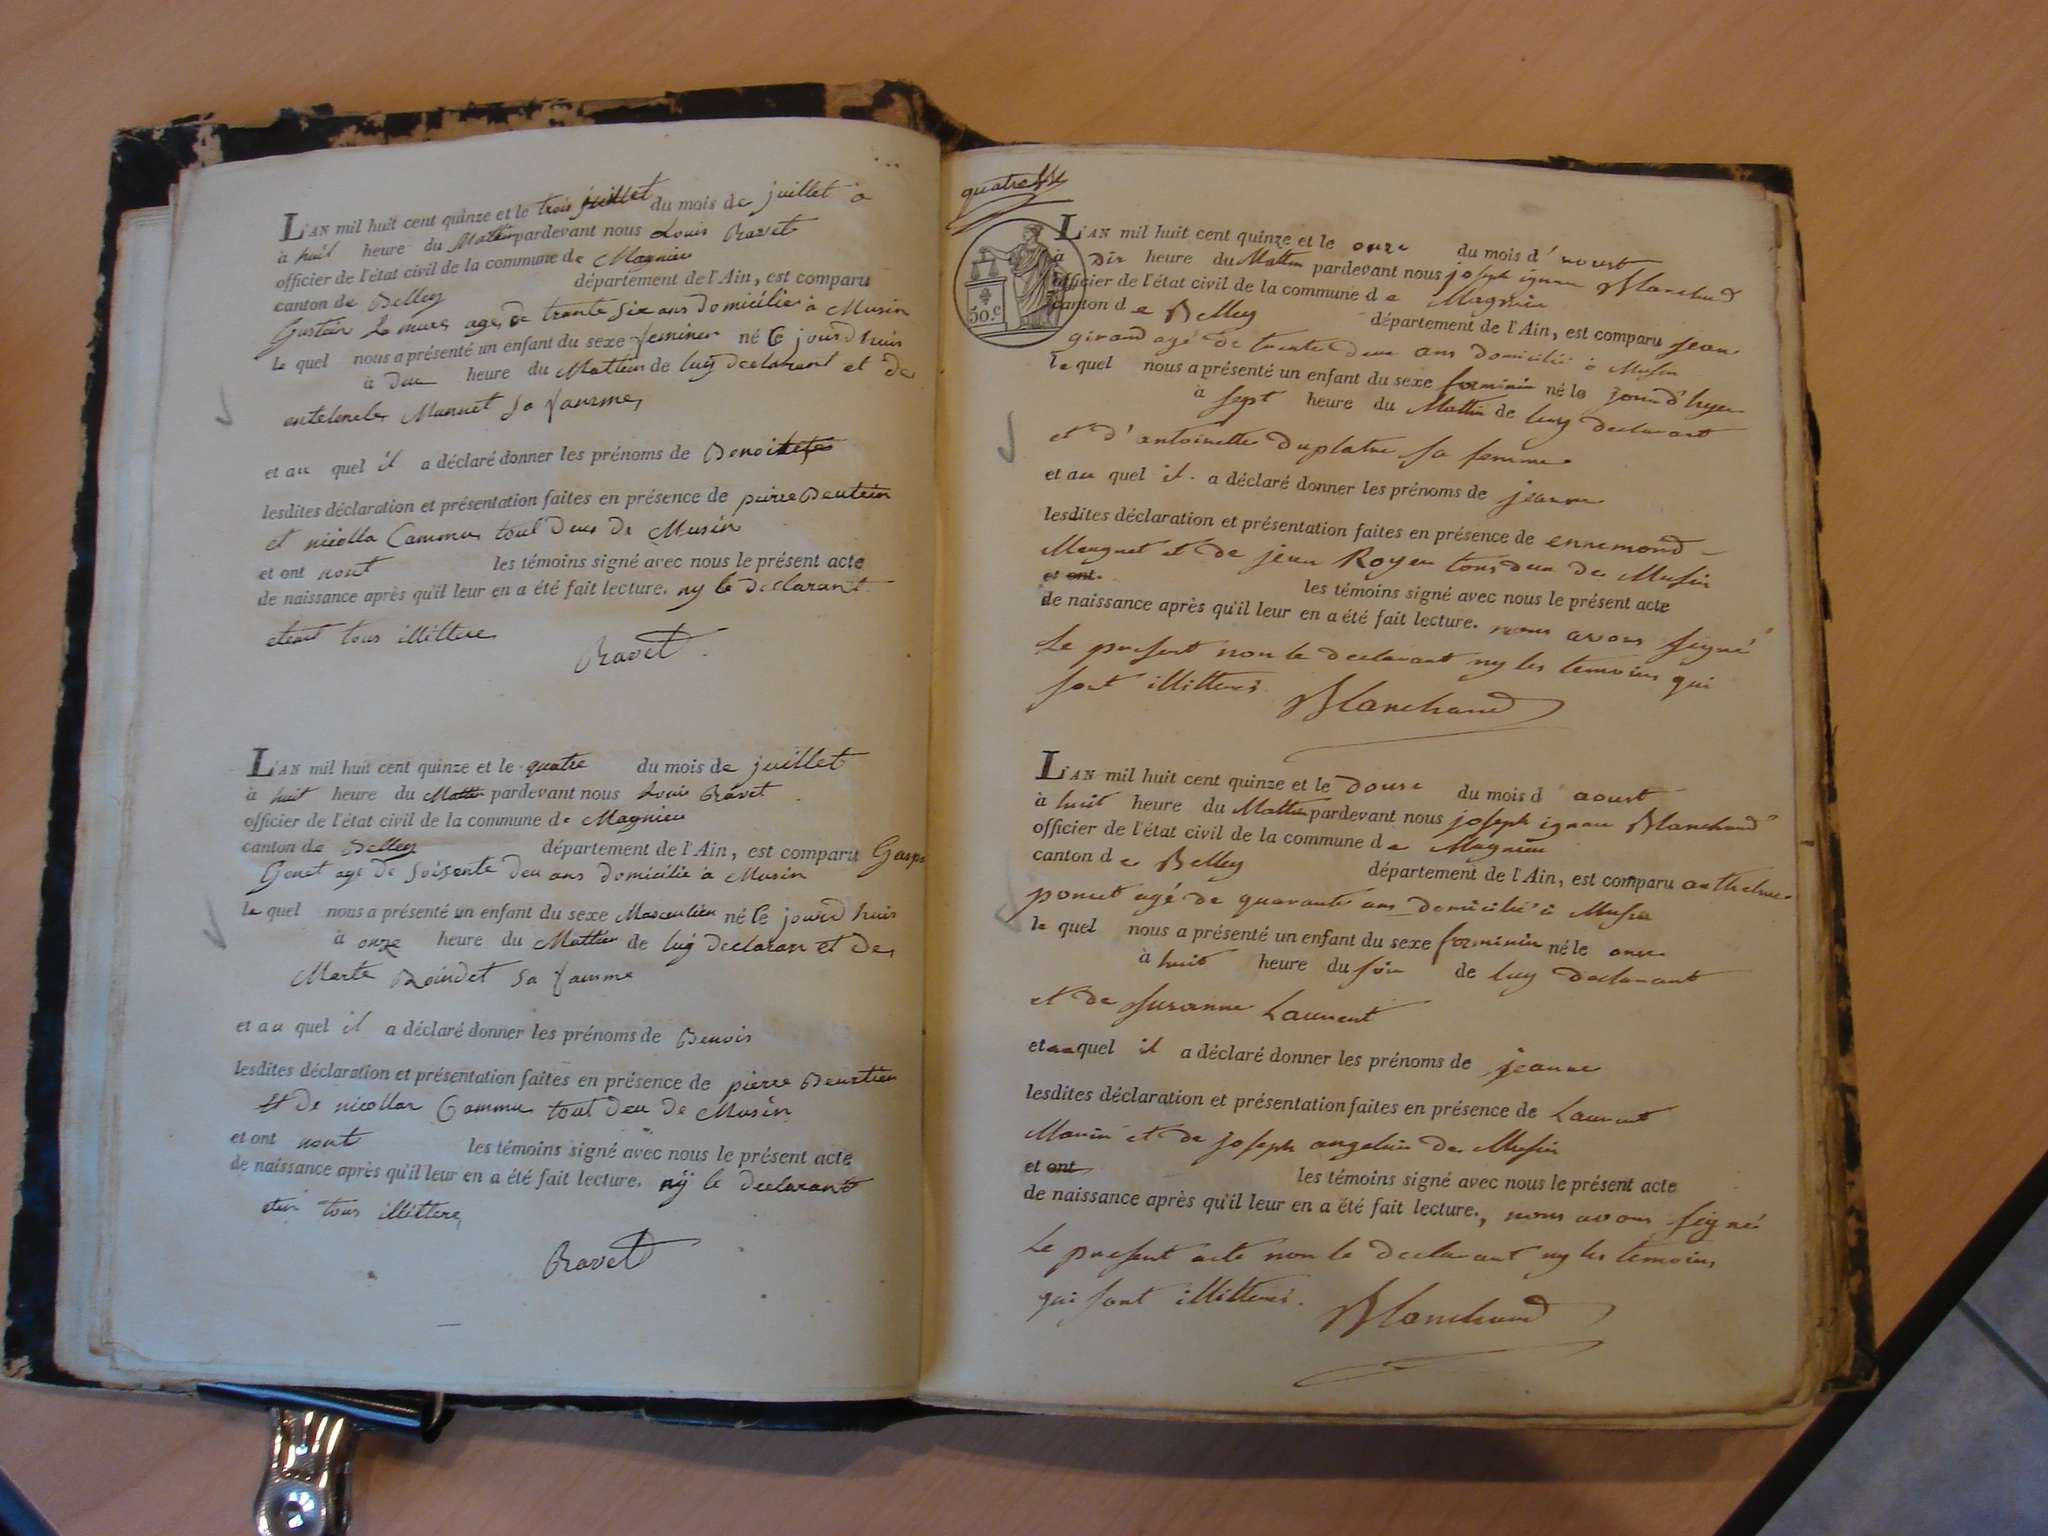 L'AN mil huit cent quinze et le trois juillet du mois de juillet à
à huit heure du Mattin pardevant nous Louis Ravet
officier de l'état civil de la commune de Magnieu
canton de Belley département de l'Ain, est comparu
age de trante six ans domicilié à Musin
le quel nous a présenté un enfant du sexe feminen né le jourd huis
à deu heure du Mattein de luy declarant et de
Munnet sa faumme
et au quel il a déclaré donner les prénoms de
lesdites déclaration et présentation faites en présence de pierre
et nicolla Cammus tout deus de Musin
et ont nont les témoins signé avec nous le présent acte
de naissance après qu'il leur en a été fait lecture. ny le declarant
etant tous illittere
Ravet
L'AN mil huit cent quinze et le quatre du mois de juillet
à huit heure du Mattin pardevant nous Louis Ravet
officier de l'état civil de la commune de Magnieu
canton de Belley département de l'Ain, est comparu Gaspa
Genet age de soisente deu ans domicilié a Musin
le quel nous a présenté un enfant du sexe Masceulien né le jourd huis
à onze heure du Mattein de luy declaran et de
Marte Roindet sa faumme
et au quel il a déclaré donner les prénoms de Benois
lesdites déclaration et présentation faites en présence de pierre
et de nicollas Cammus tout deu de Musin
et ont nont les témoins signé avec nous le présent acte
de naissance après qu'il leur en a été fait lecture. ny le declarant
tous illittere
Ravet
quatre
50.c
L'AN mil huit cent quinze et le onze du mois d'aoust
à dix heure du Mattin pardevant nous joseph ignace Blanchard
officier de l'état civil de la commune de Magnieu
canton de Belley département de l'Ain, est comparu jean
girand agé de trente deux ans domicilié à Musin
le quel nous a présenté un enfant du sexe foeminin né le jourd'huy
à sept heure du Mattin de luy declarant
et d'antoinette duplatre sa femme
et au quel il a déclaré donner les prénoms de jeanne
lesdites déclaration et présentation faites en présence de ennemond
Meugnet et de jean Royer tous deux de Musin
et ont les témoins signé avec nous le présent acte
de naissance après qu'il leur en a été fait lecture. nous avons signé
le present non le declarant ny les temoins qui
sont illitterés Blanchard
L'AN mil huit cent quinze et le douze du mois d aoust
à huit heure du Mattin pardevant nous joseph ignace Blanchard
officier de l'état civil de la commune de Magnieu
canton de Belley département de l'Ain, est comparu anthelme
poncet agé de quarante ans domicilié à Musin
le quel nous a présenté un enfant du sexe foeminin né le onze
à huit heure du soir de luy declarant
et de suzanne Laurent
et au quel il a déclaré donner les prénoms de jeanne
lesdites déclaration et présentation faites en présence de Laurent
Marin et de joseph angelin de Musin
et ont les témoins signé avec nous le présent acte
de naissance après qu'il leur en a été fait lecture., nous avons signé
le present acte non le declarant ny les temoins
qui sont illitterés. Blanchard